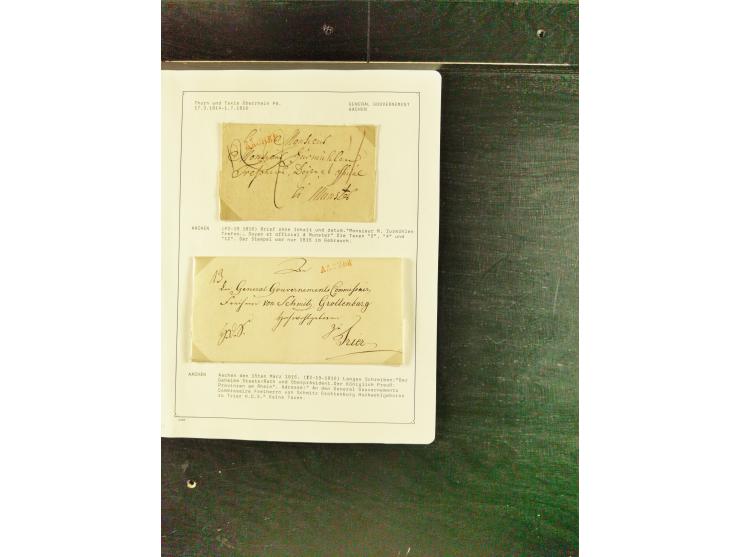 Thurn und Taxis Oberrhein PA.
17.3.1814-1.7.1816
GENERAL GOUVERNEMENT
AACHEN
AACHEN
Monsieur
Monsieur Zurmühlen
à Munster
AACHEN (#2-19 1815) Brief ohne Inhalt und datum. "Monsieur M. Zurmühlen
Trefon.. Doyen et official à Munster" Die Taxen "2", "4" und
"12". Der Stempel war nur 1815 in Gebrauch.
AACHEN
13.
den General Gouvernements Commissair,
Freiherrn von Schmitz Grollenburg
Hochwohlgeboren
zu
Trier
AACHEN Aachen den 15ten März 1815. (#2-19-1816) Langes Schreiben: "Der
Geheime Staats-Rath und Oberpräsident.Der Königlich Preuß.
Provinzen am Rhein". Adresse:" An den General Gouvernements
Commissaire Freiherrn von Schmitz Grottenburg Hochwohlgeboren
zu Trier H.D.S." Keine Taxen.